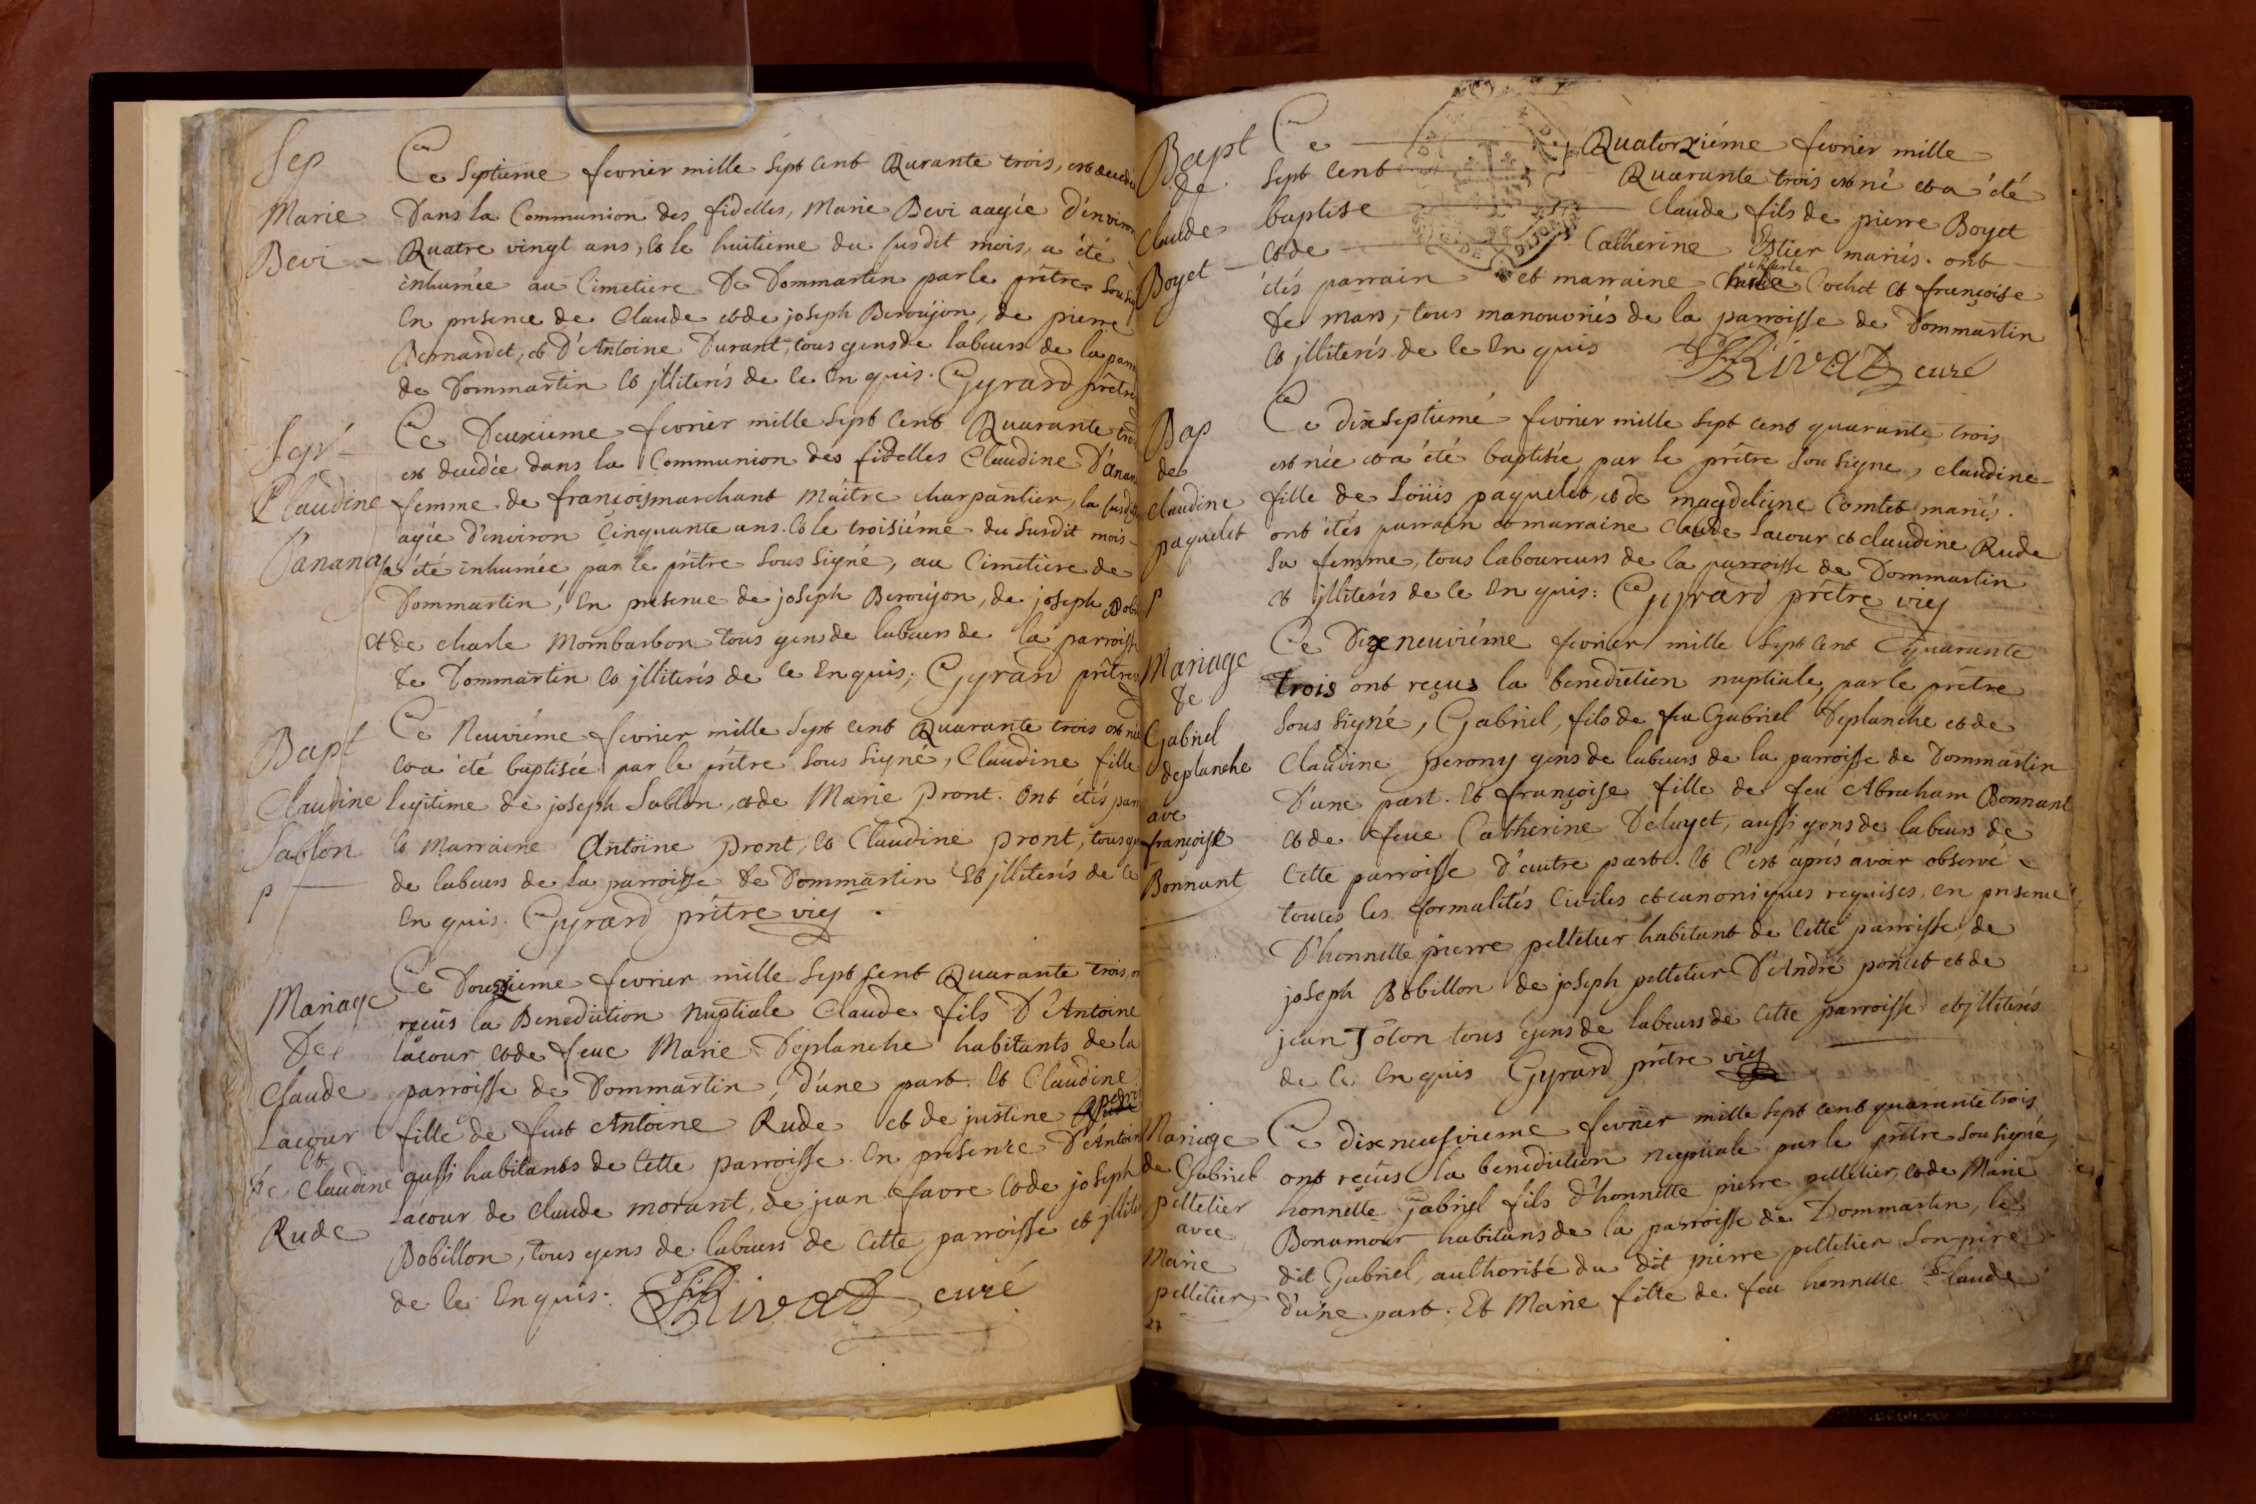 Sep
Marie
Bevi
Ce septieme fevrier mille sept cent Qurante trois, est decedée
Dans la Communion des fidelles, Marie Bevi aagée D'environ
Quatre vingt ans, et le huitieme du susdit mois, a été
inhumée au Cimetiere De Dommartin par le prêtre sous
En presence de Claude et de joseph Beroujon, de pierre
Bernardet, et D'Antoine Durant, tous gens de labeurs de la
de Dommartin et jlliterés de ce Enquis. Gyrard prêtre
Sepr
Claudine
Danana
Ce Deuxieme fevrier mille sept cent Quarante trois
est decedée dans la Communion des fidelles Claudine D'anan
femme de françois marchant maitre charpantier, la susd
agée d'environ cinquante ans. et le troisiéme du susdit mois
a été inhumée par le prêtre sous signé, au Cimetiere de
Dommartin, En presence de joseph Beroujon, de joseph Bobi
et de charle Mombarbon tous gens de labeurs de la parroisse
de Dommartin et jlliterés de ce Enquis; Gyrard prêtre
Bapt
Claudine
Sablon
p
Ce Neuviéme fevrier mille sept cent Quarante trois est née
et a été baptisée par le prêtre sous signé, Claudine fille
legitime de joseph Sablon, et de Marie Pront. Ont étés par
et Marraine Antoine Pront, et Claudine Pront, tous
de labeurs de la parroisse de Dommartin et jlliterés de ce
Enquis. Gyrard prêtre vicy
Mariage
De
Claude
Lacour
et
de Claudine
Rude
Ce Douzieme fevrier mille sept cent Quarante trois,
reçus la Benediction Nuptiale Claude fils D'Antoine
lacour et de feue Marie Deplanche habitants de la
parroisse de Dommartin, d'une part. et Claudine
fille de Antoine Rude et de justine
aussi habitants de Cette parroisse. En presence D'Antoin
Lacour de Claude morant, de jean favre et de joseph
Bobillon, tous gens de labeurs de Cette parroisse et jllite
de ce Enquis. Rivat curé
Bapt
de
Claude
Boyet
Ce Quatorziéme fevrier mille
sept cent Quarante trois est né et a été
baptise Claude fils de pierre Boyet
et de Catherine Estier mariés. ont
étés parrain et marraine Cochet et françoise
de mars, tous manouvriés de la parroisse de Dommartin
et jlliterés de ce Enquis Rivat curé
Bap
de
claudine
paquelet
p
Ce dixseptiemé fevrier mille sept cent quarante trois
est née et a été baptisée par le prêtre sou signe, claudine
fille de Loüis paquelet, et de magdeleine Comtet mariés.
ont étés parrain et marraine Claude Lacour et claudine Rude
sa femme, tous laboureurs de la parroisse de Dommartin
et jlliterés de ce Enquis: Gyrard prêtre vicy
Mariage
de
Gabriel
deplanche
ave
françoise
Bonnant
Ce Dixneuviéme fevrier mille sept cent Quarante
trois ont reçus la benediction nuptiale par le prêtre
sous signé, Gabriel, fils de feu Gabriel Deplanche et de
Claudine perony gens de labeurs de la parroisse de Dommartin
D'une part. Et françoise fille de feu Abraham Bonnant
et de feue Catherine Deluyet, aussi gens de labeurs de
cette parroisse d'autre part. et C'est aprés avoir observé
toutes les formalités Civiles et canoniques requises, en presence
D'honnette pierre pelletier habitant de Cette parroisse, de
joseph Bobillon de joseph pelletier D'André poncet et de
jean Joton tous gens de labeurs de Cette parroisse et jlliterés
de ce Enquis Gyrard prêtre vicy
Mariage
de Gabriel
pelletier
avec
Marie
pelletier
Ce dixneufvieme fevrier mille sept cent quarante trois
ont reçus la benediction nuptiale par le prêtre sou signé,
honnette Gabriel fils d'honnette pierre pelletier, et de Marie
Bonamour habitans de la parroisse de Dommartin, le
dit Gabriel, authorisé du dit pierre pelletier son pere
d'une part. Et Marie fille de feu honnette Claude